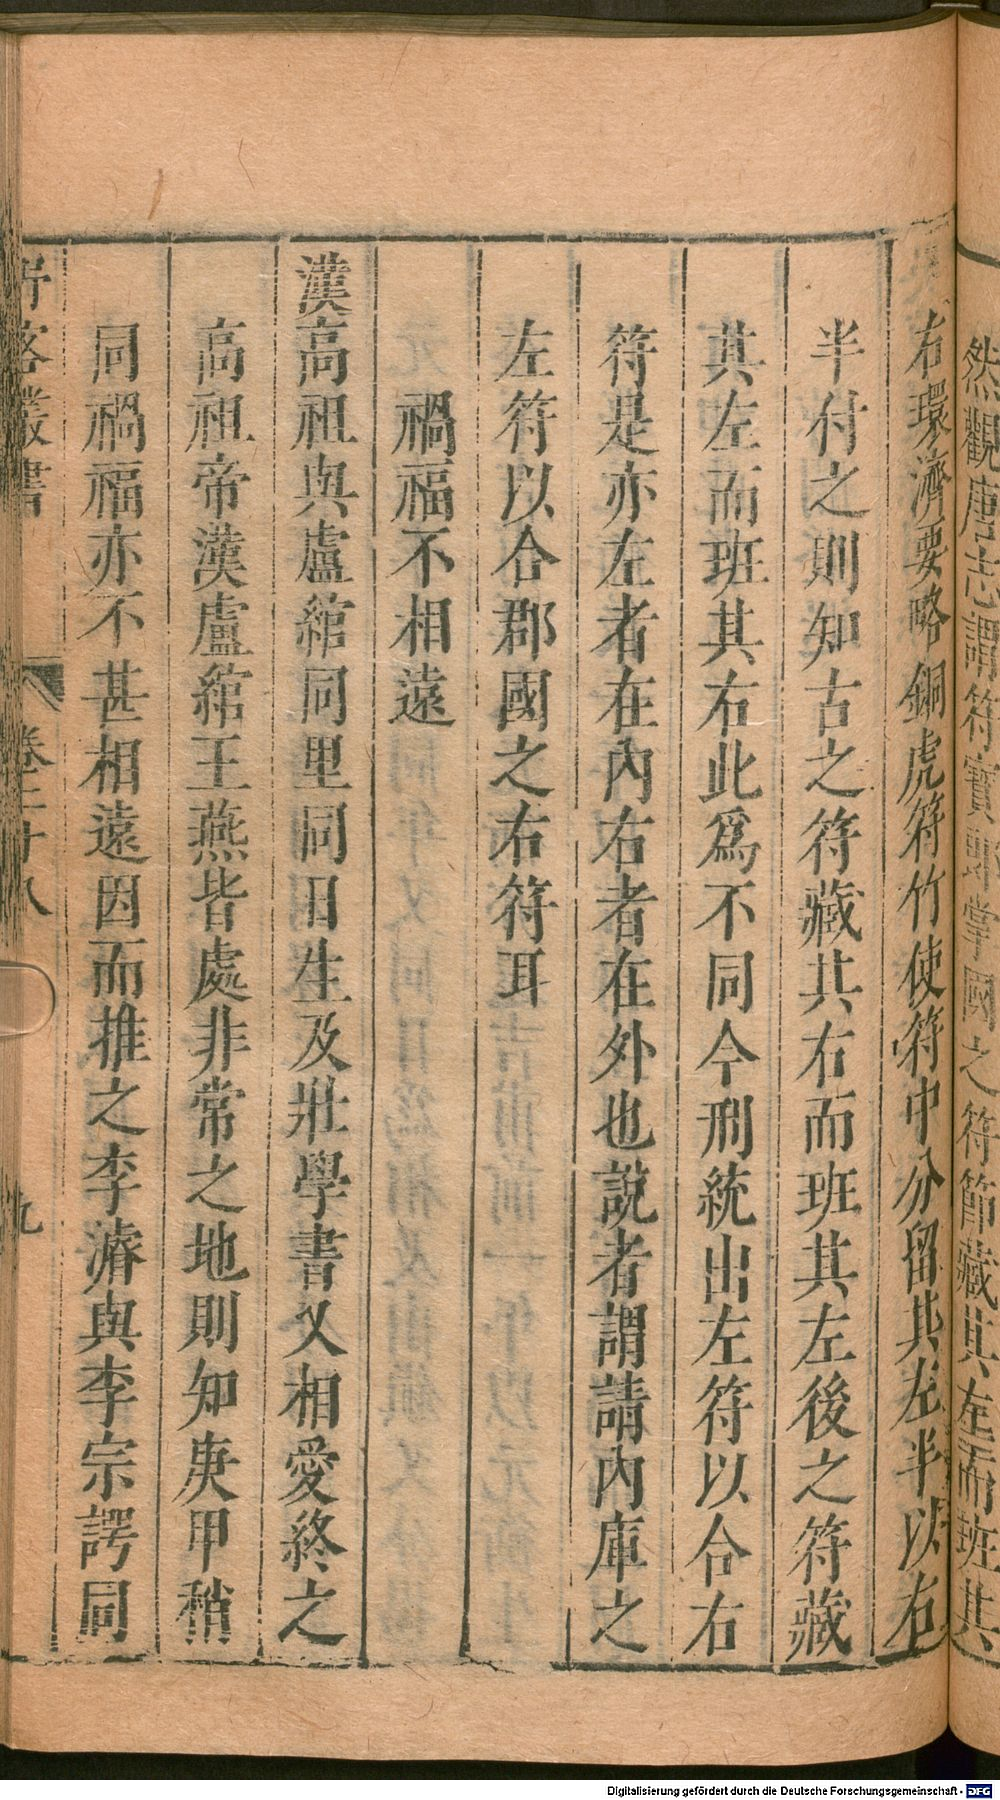 然觀唐志謂符寶郎掌國之符節藏其左而班其
右環濟要略銅虎符竹使符中分留其左半以右
半付之則知古之符藏其右而班其左後之符藏
其左而班其右此爲不同今刑統出左符以合右
符是亦左者在內右者在外也說者謂請內庫之
左符以合郡國之右符耳
禍福不相遠
漢高祖與盧綰同里同日生及壯學書又相愛終之
高祖帝漢盧綰王燕皆處非常之地則知庚甲稍
同禍福亦不甚相遠因而推之李濬與李宗諤同
野客叢書
卷二十八
九
Digitalisierung gefördert durch die Deutsche Forschungsgemeinschaft - DFG